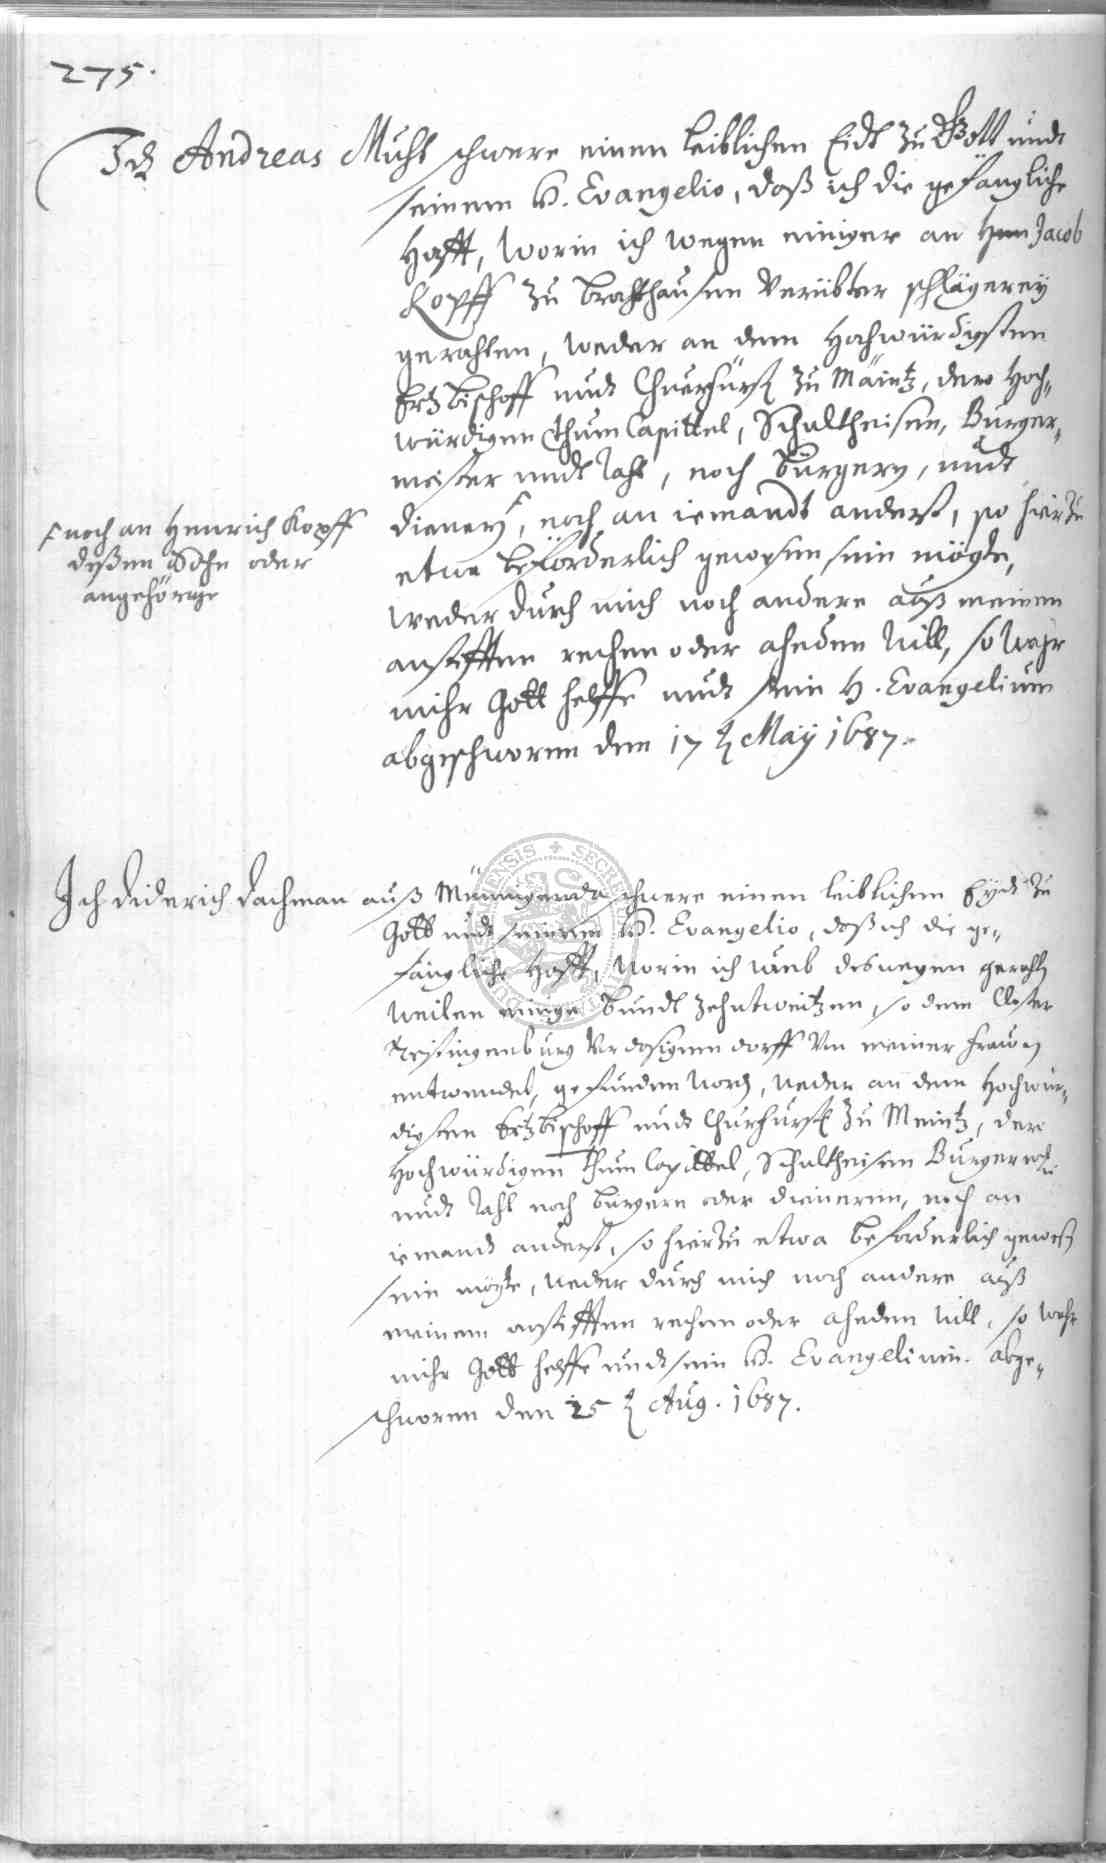 275.
Ich Andreas Muhs schwere einen leiblichen Eidt zu Gott undt
seinem H. Evangelio, daß ich die gefängliche
Hafft, worin ich wegen einiger an Hrn Jacob
Kopff zu verübter schlägerey
gerahten, weder an dem Hochwürdigsten
Ertzbischoff undt Churfürst zu Mäintz, dero Hoch-
würdigen Thum Capittel, Schultheisen, Burger-
meister undt Raht, noch bürgern, undt
dienern, noch an iemandt anderst, so hierzu
etwa beförderlich gewesen sein mögte,
weder durch mich noch andere auß meinem
anstifften rechen oder ahnden will, so wahr
mihr Gott helffe undt sein H. Evangelium
abgeschworen den 17 t May 1687.
noch an Henrich Kopff
deßen Sohn oder
angehörige
Ich Diderich Dachman auß schwere einen leiblichen Eydt zu
Gott undt seinem H. Evangelio, daß ich die ge-
fängliche Hafft, worin ich umb deswegen gerahten
weilen einige bundt zehntweitzen, so dem Closter
von meiner frawen
entwendet, gefunden worden, weder an dem Hochwür-
digsten Ertzbischoff undt Churfürst zu Meintz, dero
Hochwürdigen Thum Capittel, Schultheisen Burgermeister
undt Raht noch bürgern oder dienern, noch an
iemandt anderst, so hierzu etwa beforderlich gewesen
sein mögte, weder durch mich noch andere auß
meinem anstifften rechen oder ahnden will, so wahr
mihr Gott helffe undt sein H. Evangelium. abge-
schworen den 25 t Aug. 1687.